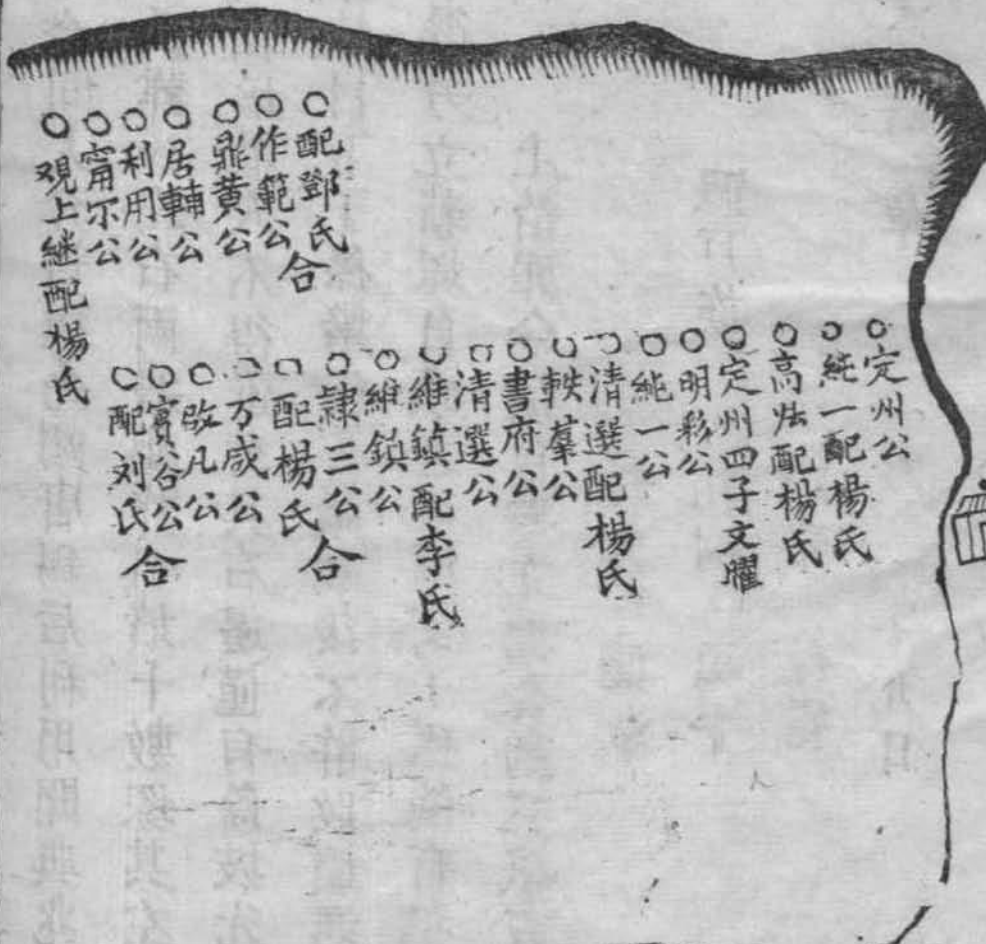 配鄧氏
作範公
合
鼎黃公
居輔公
利用公
甯尔公
覌上継配楊氏
定州公
純一配楊氏
高炫配楊氏
定州四子文曜
明彩公
純一公
清選配楊氏
軼羣公
書府公
清選公
維鎮配李氏
維鎮公
隷三公
配楊氏
合
万成公
啟凡公
賓谷公
配刘氏
合